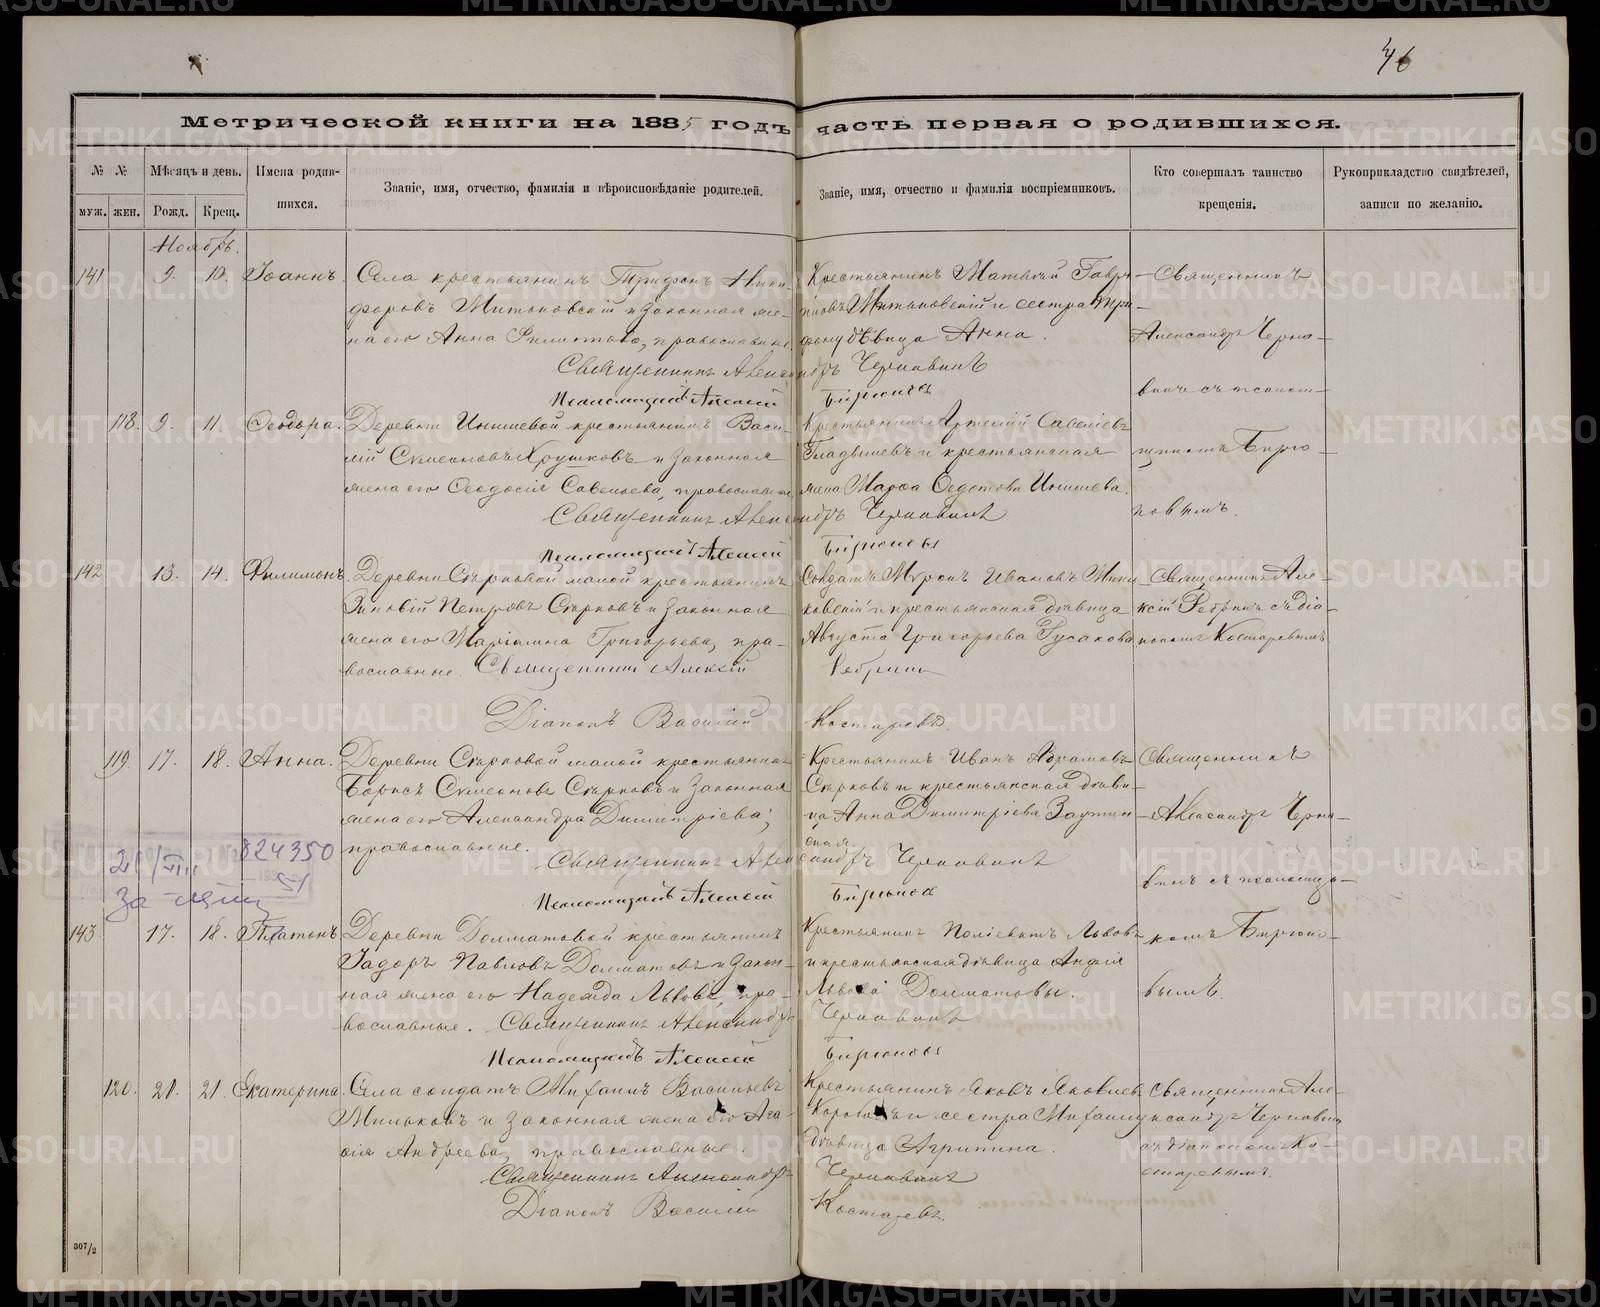 46
Метрической книги на 1885 годъ часть первая о родившихся.
№ №
муж. жен.
Мѣсяцъ и день.
Рожд. Крещ.
Имена родив-
шихся.
Званіе, имя, отчество, фамилія и вѣроисповѣданіе родителей.
Званіе, имя, отчество и фамилія воспріемниковъ.
Кто совершалъ таинство
крещенія.
Рукоприкладство свидѣтелей,
записи по желанію.
Ноябрь.
141 9. 10. Іоаннъ.
Села крестьянинъ Трифонъ Ники-
форовъ и законная же-
на его Анна Филиппова, православные.
Священникъ Александръ Чернавинъ
Псаломщикъ Алексѣй Бирюковъ
Крестьянинъ Матвѣй Гаври-
ловъ и сестра Три-
фону дѣвица Анна.
Священникъ
Александръ Черна-
винъ съ псалом-
щикомъ Бирю-
ковымъ.
118. 9. 11. Ѳеодора.
Деревни Иньшевой крестьянинъ Васи-
лій Симеоновъ Хрушковъ и законная
жена его Ѳеодосія Савельева, православные
Священникъ Александръ Чернавинъ
Псаломщикъ Алексѣй Бирюковъ
Крестьянинъ Артемій Савеліевъ
Гладышевъ и крестьянская
жена Марѳа Ѳедотова Иньшева.
142 13. 14. Филимонъ.
Деревни Сѣрковой малой крестьянинъ
Зиновій Петровъ Сѣрковъ и законная
жена его Маріамна Григорьева, пра-
вославные. Священникъ Алексѣй Ребринъ
Діаконъ Василій Костаревъ.
Солдатъ Миронъ Ивановъ
и крестьянская дѣвица
Августа Григорьева Русакова
Священникъ Але-
ксѣй Ребринъ съ діа-
кономъ Костаревымъ
119. 17. 18. Анна.
Деревни Сѣрковой малой крестьянинъ
Борисъ Симеоновъ Сѣрковъ и законная
жена его Александра Димитріева,
православные.
Священникъ Александръ Чернавинъ
Псаломщикъ Алексѣй Бирюковъ
Крестьянинъ Иванъ Абрамовъ
Сѣрковъ и крестьянская дѣви-
ца Анна Димитріева
Священникъ
Александръ Черна-
винъ съ псаломщи-
комъ Бирюко-
вымъ.
824350
143 17. 18. Платонъ.
Деревни Долматовой крестьянинъ
Павловъ Долматовъ и закон-
ная жена его Надежда Львова, пра-
вославные. Священникъ Александръ Чернавинъ
Псаломщикъ Алексѣй Бирюковъ
Крестьянинъ Поліевктъ Львовъ
и крестьянская дѣвица Анфія
Львова Долматовы.
120. 21. 21. Екатерина.
Села солдатъ Михаилъ Васильевъ
Миньковъ и законная жена его Ага-
ѳія Андреева, православные.
Священникъ Александръ Чернавинъ
Діаконъ Василій Костаревъ.
Крестьянинъ Яковъ Яковлевъ
и сестра Михаилу
дѣвица Агрипина.
Священникъ Але-
ксандръ Чернавинъ
съ діакономъ Ко-
старевымъ.
307/2
METRIKI.GASO-URAL.RU